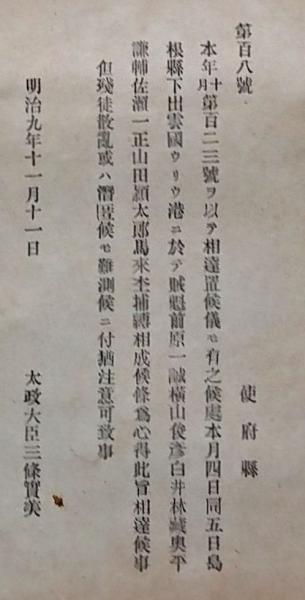 第百八號
使府縣
本年十月第百二三號ヲ以テ相達置候儀モ有之候處本月四日同五日島
根縣下出雲國ウリウ港ニ於テ賊魁前原一誠横山俊彦白井林藏奥平
謙輔佐瀬一正山田頴太郎馬來杢捕縛相成候條爲心得此旨相達候事
但殘徒散亂或ハ潛匿候モ難測候ニ付猶注意可致事
明治九年十一月十一日
太政大臣三條實美